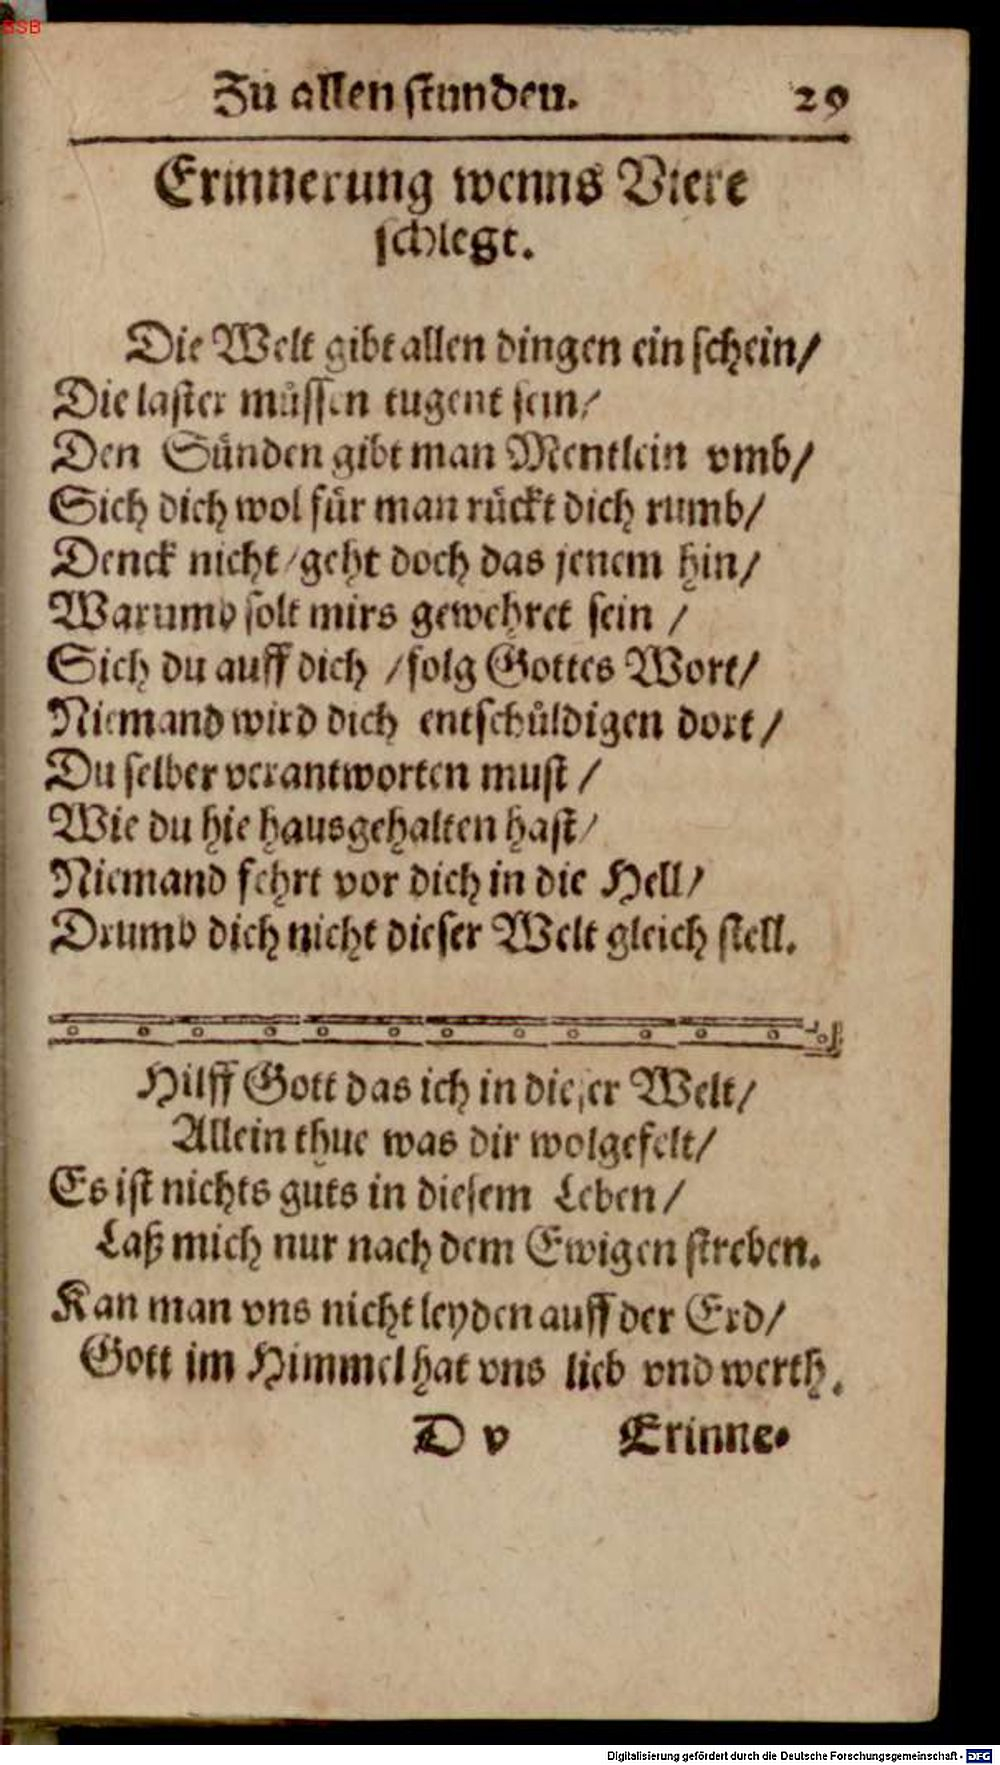 BSB
Zu allen stunden. 29
Erinnerung wenns Viere
schlegt.
Die Welt gibt allen dingen ein schein/
Die laster müssen tugent sein/
Den Sünden gibt man Mentlein vmb/
Sich dich wol für man rückt dich rumb/
Denck nicht/geht doch das jenem hin/
Warumb solt mirs gewehret sein /
Sich du auff dich /folg Gottes Wort/
Niemand wird dich entschüldigen dort/
Du selber verantworten must /
Wie du hie hausgehalten hast/
Niemand fehrt vor dich in die Hell/
Drumb dich nicht dieser Welt gleich stell.
Hilff Gott das ich in dieser Welt/
Allein thue was dir wolgefelt/
Es ist nichts guts in diesem Leben/
Laß mich nur nach dem Ewigen streben.
Kan man vns nicht leyden auff der Erd/
Gott im Himmel hat vns lieb vnd werth.
D v Erinne-
Digitalisierung gefördert durch die Deutsche Forschungsgemeinschaft - DFG